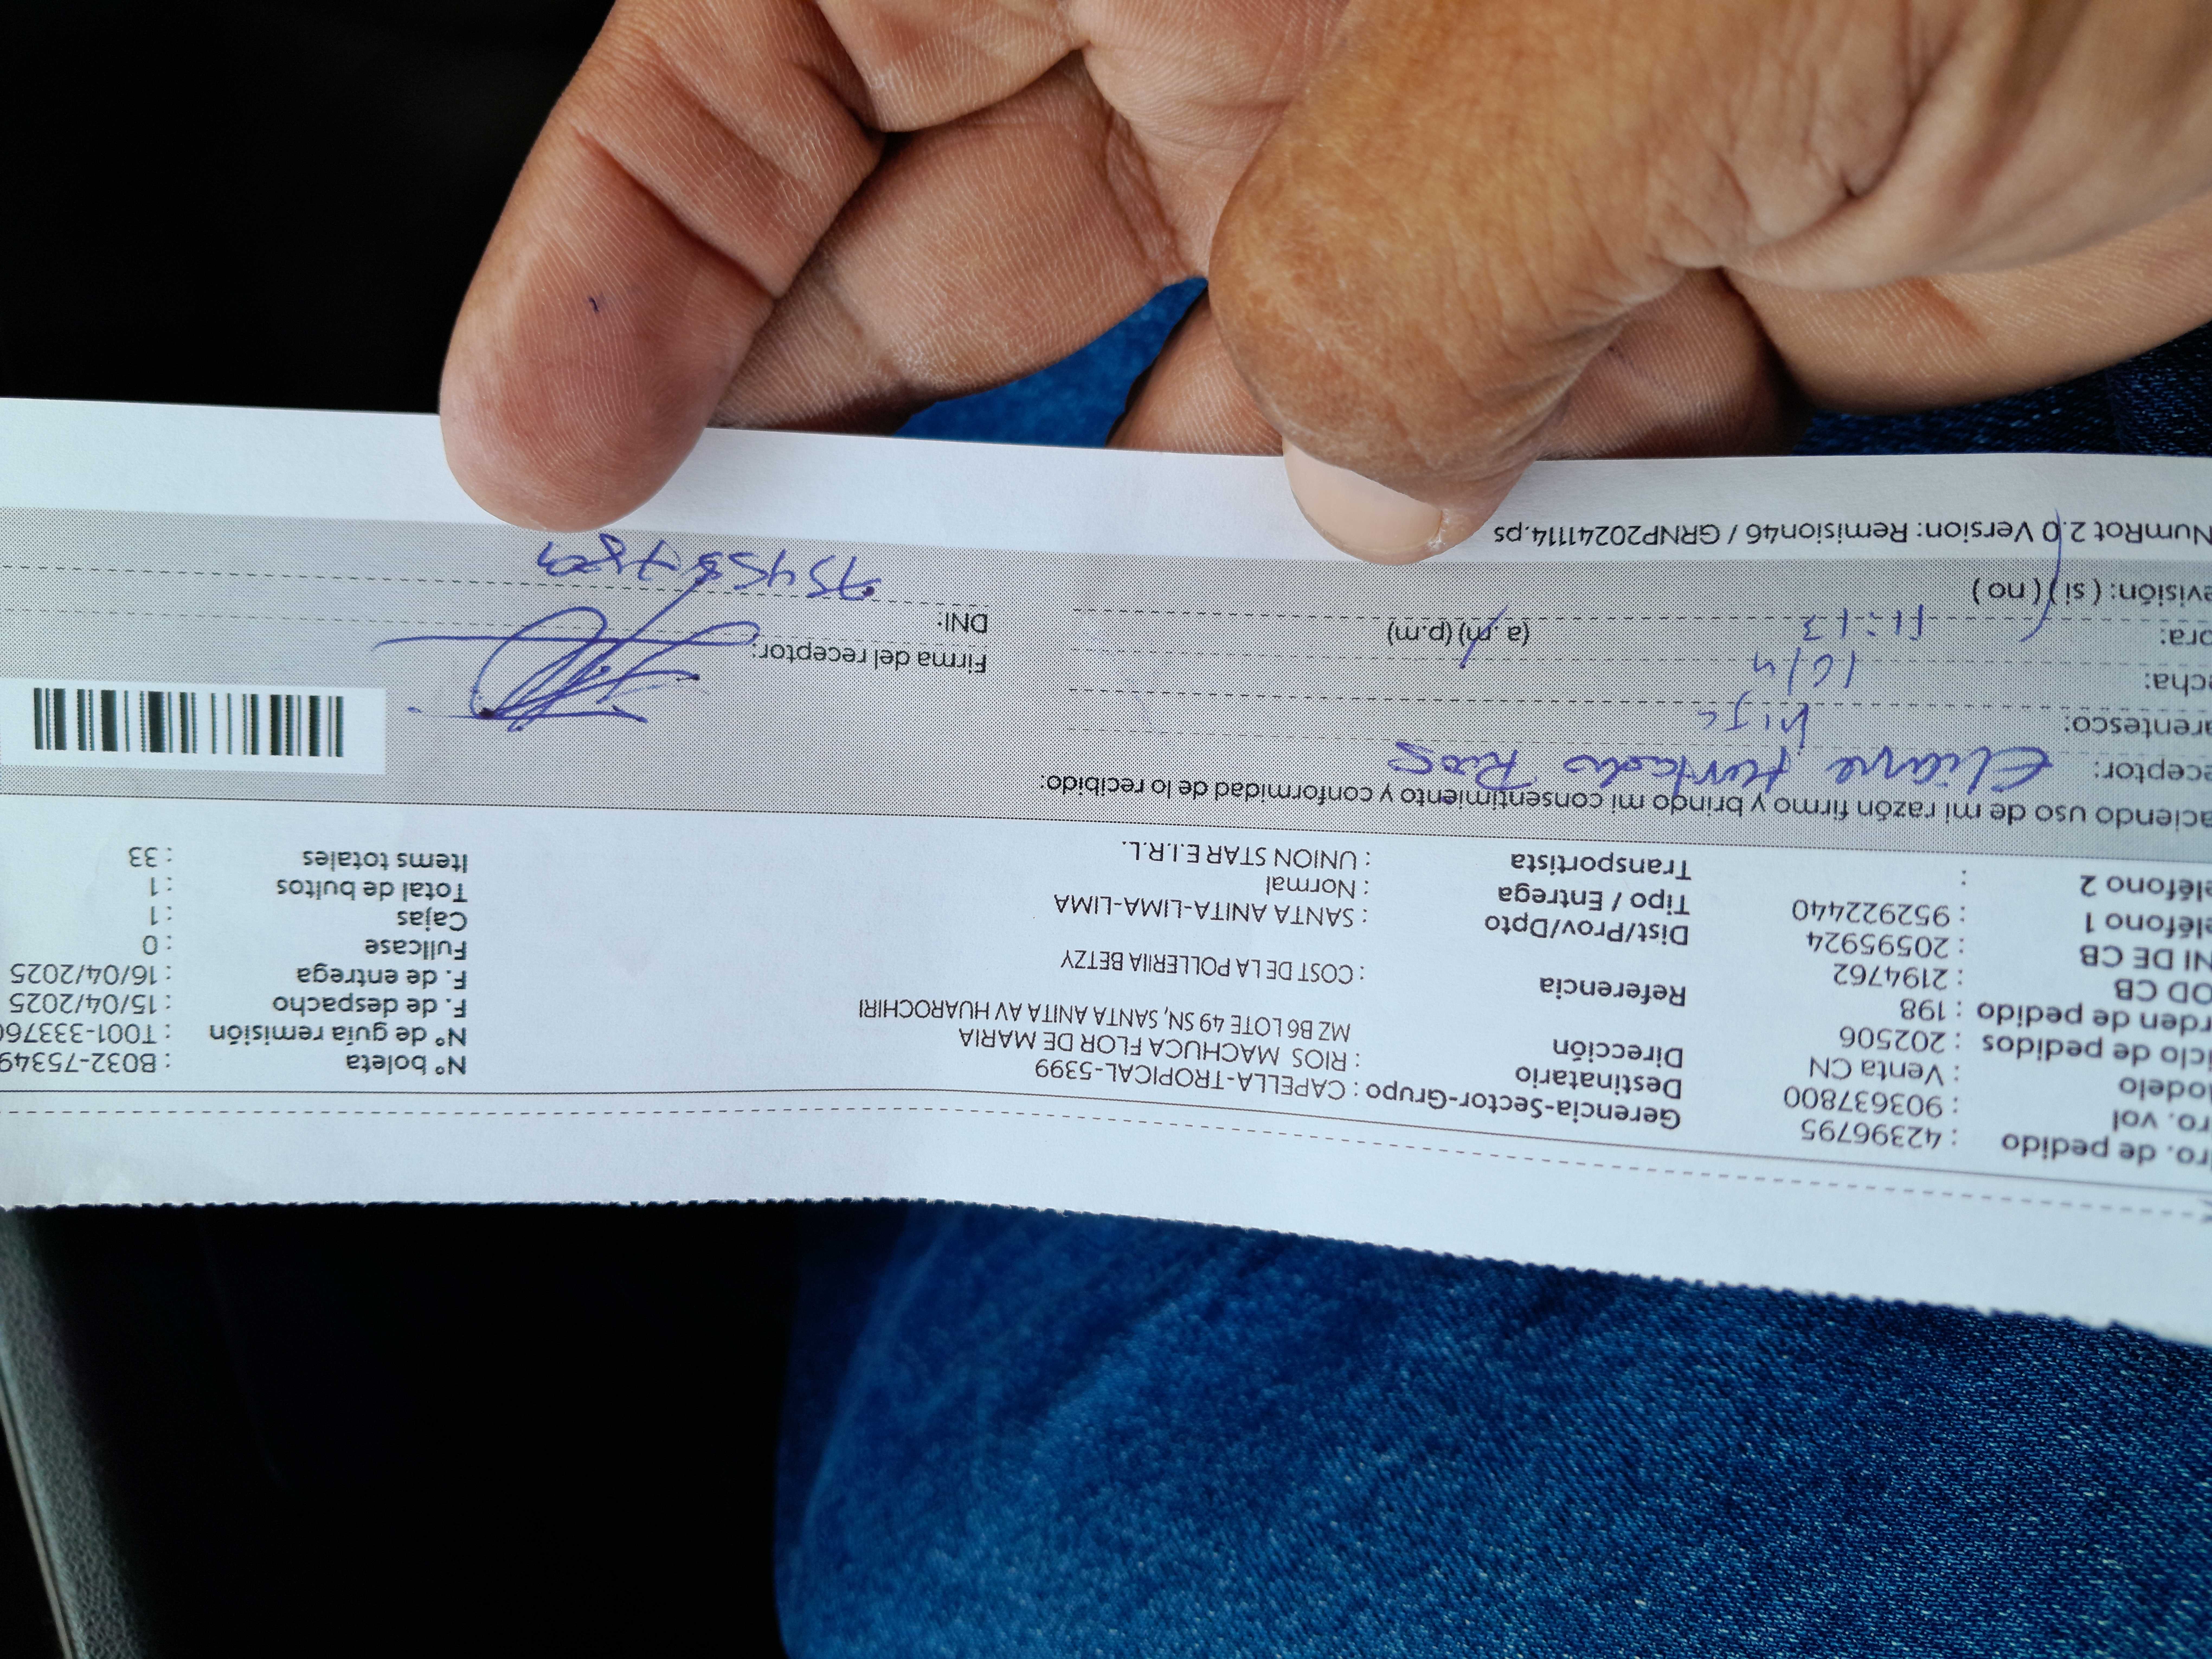 ro. de pedido : 42396795 Gerencia-Sector-Grupo : CAPELLA-TROPICAL-5399 N° boleta : B032-75349
ro. vol : 903637800 Destinatario : RIOS MACHUCA FLOR DE MARIA N° de guía remisión : T001-33376
odelo : Venta CN Dirección MZ B6 LOTE 49 SN, SANTA ANITA AV HUAROCHIRI F. de despacho : 15/04/2025
iclo de pedidos : 202506 F. de entrega : 16/04/2025
rden de pedido : 198 Referencia : COST DE LA POLLERIIA BETZY Fullcase : 0
OD CB : 2194762 Cajas : 1
NI DE CB : 20595924 Dist/Prov/Dpto : SANTA ANITA-LIMA-LIMA Total de bultos : 1
eléfono 1 : 952922440 Tipo / Entrega : Normal Items totales : 33
eléfono 2 : Transportista : UNION STAR E.I.R.L.
aciendo uso de mi razón firmo y brindo mi consentimiento y conformidad de lo recibido:
eceptor: Eliane Hurtado Rios
arentesco: hija
echa: 16/4
ora: 11:13 (a.m) (p.m) Firma del receptor:
evisión: ( si ) ( no ) DNI:
NumRot 2.0 Version: Remision46 / GRNP20241114.ps